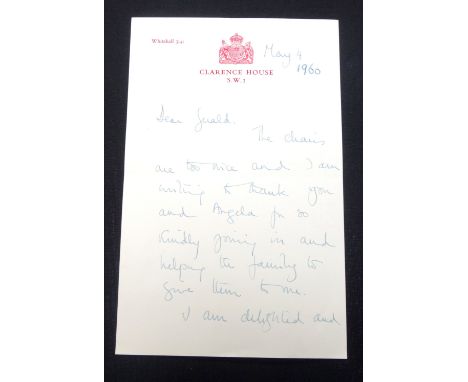 Whitehall 3141
May 4
1960
CLARENCE HOUSE
S.W.1
Dear Gerald.
The chairs
are too nice and I am
writing to thank you
and Angela for so
kindly joining in and
helping the family to
give them to me.
I am delighted and